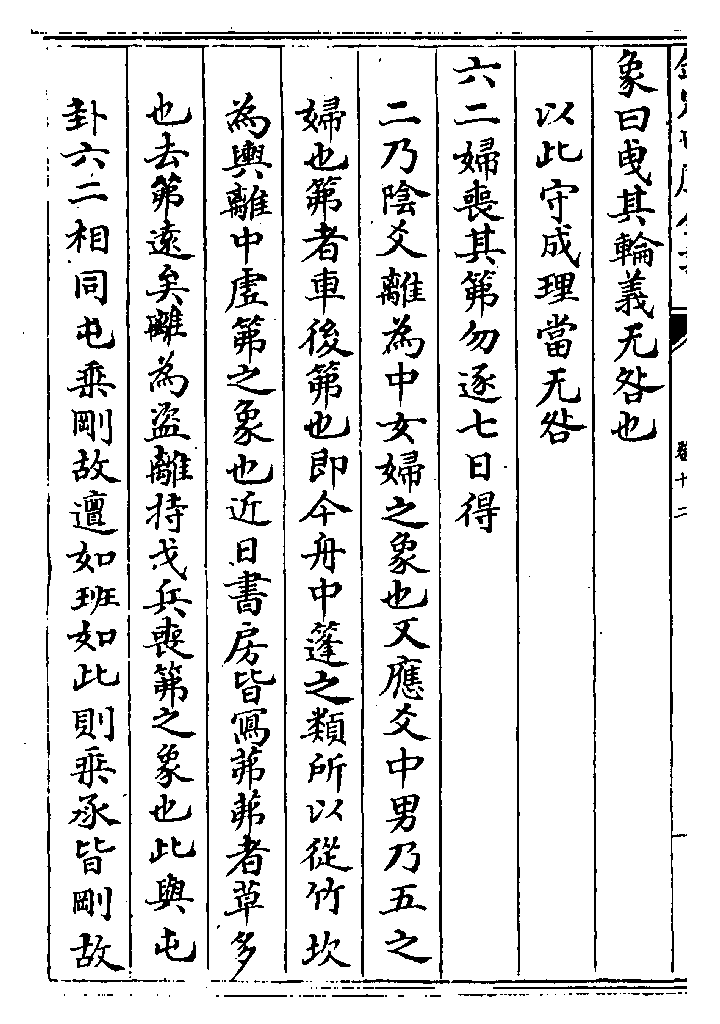 卷十二
象曰曵其輪義无咎也
以此守成理當无咎
六二婦喪其笰勿逐七日得
二乃陰爻離為中女婦之象也又應爻中男乃五之
婦也笰者車後笰也即今舟中篷之類所以從竹坎
為輿離中虛笰之象也近日書房皆寫茀茀者草多
也去笰遠矣離為盜離持戈兵喪笰之象也此與屯
卦六二相同屯乗剛故邅如班如此則乗承皆剛故